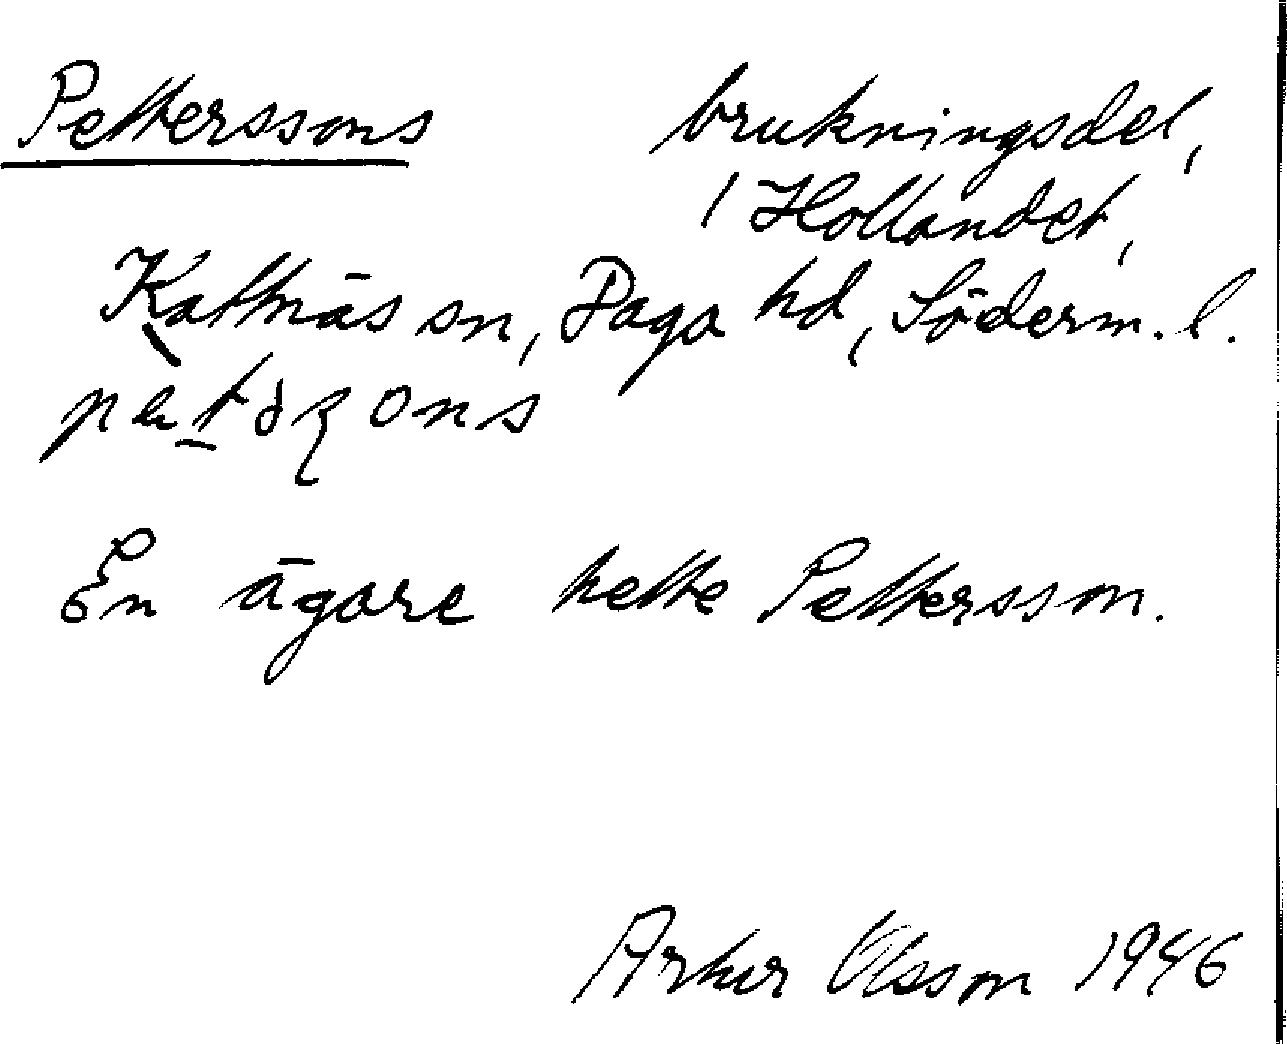 Pettersons brukningsdel,
1 Hollandet,
Kattnäs sn, Daga hd, Söderm. l.
En ägare hette Pettersson.
Artur Olsson 1946